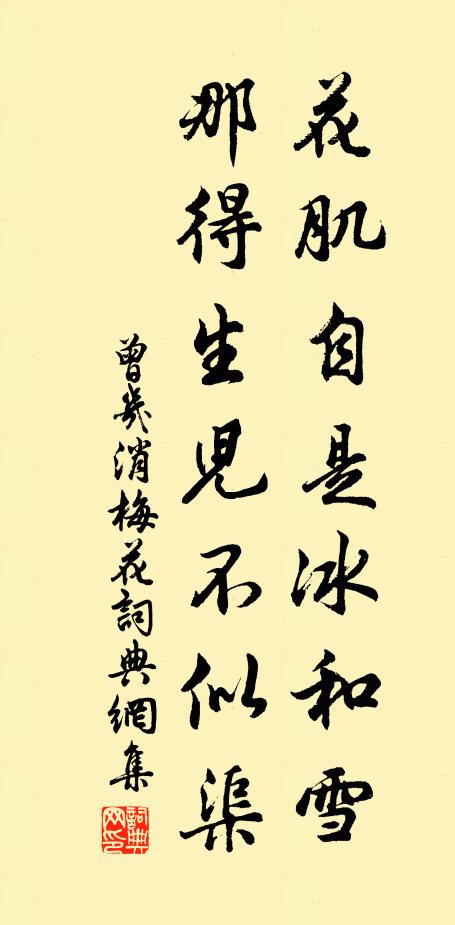 花肌自是冰和雪
那得生兒不似渠
曾幾消梅花詞典網集
詞典网印